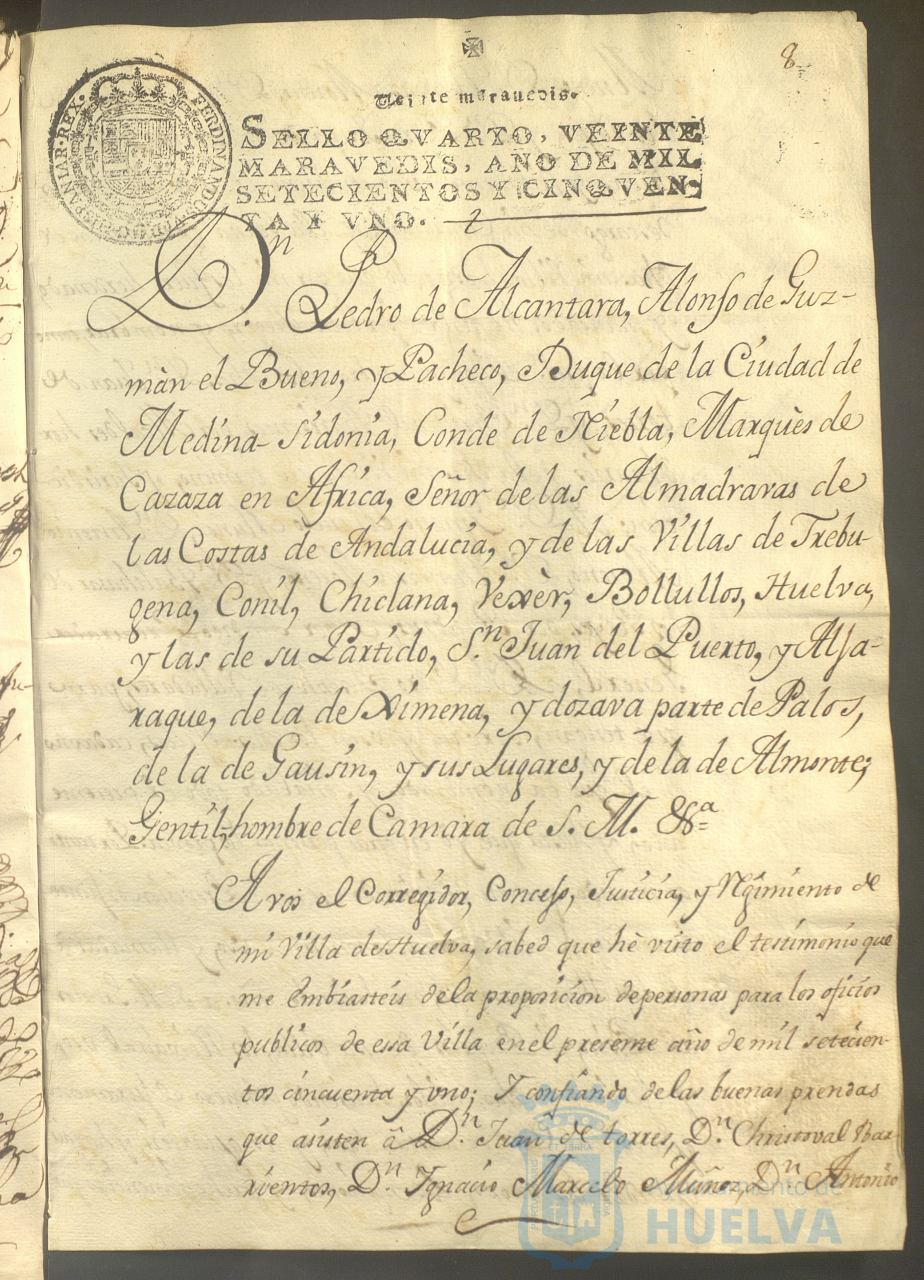 8
Veinte marauedis.
SELLO QVARTO, VEINTE
MARAVEDIS, AÑO DE MIL
SETECIENTOS Y CINQVEN-
TA Y VNO.
HISPANIAR. REX. FERDINANDUS
D.n Pedro de Alcantara, Alonso de Guz-
màn el Bueno, y Pacheco, Duque de la Ciudad de
Medina Sidonia, Conde de Niebla, Marquès de
Cazaza en Africa, Señor de las Almadravas de
las Costas de Andalucia, y de las Villas de Trebu-
gena, Conil, Chiclana, Vexèr, Bollullos, Huelva,
y las de su Partido, S.n Juan del Puerto, y Alja-
raque, de la de Ximena, y dozava parte de Palos,
de la de Gausin, y sus Lugares, y de la de Almonte;
Gentil hombre de Camara de S. M. &.a
A vos el Corregidor, Concejo, Justicia, y Rgimiento de
mi Villa de Huelva, sabed que hè visto el testimonio que
me Embiasteis de la proposicion de personas para los oficios
publicos de essa Villa en el presente año de mil setecien-
tos cincuenta y uno; Y confiando de las buenas prendas
que asisten â D.n Juan de torres, D.n Christoval Bar-
rientos, D.n Ignacio Marcelo Muñoz, D.n Antonio
Ayuntamiento de
HUELVA